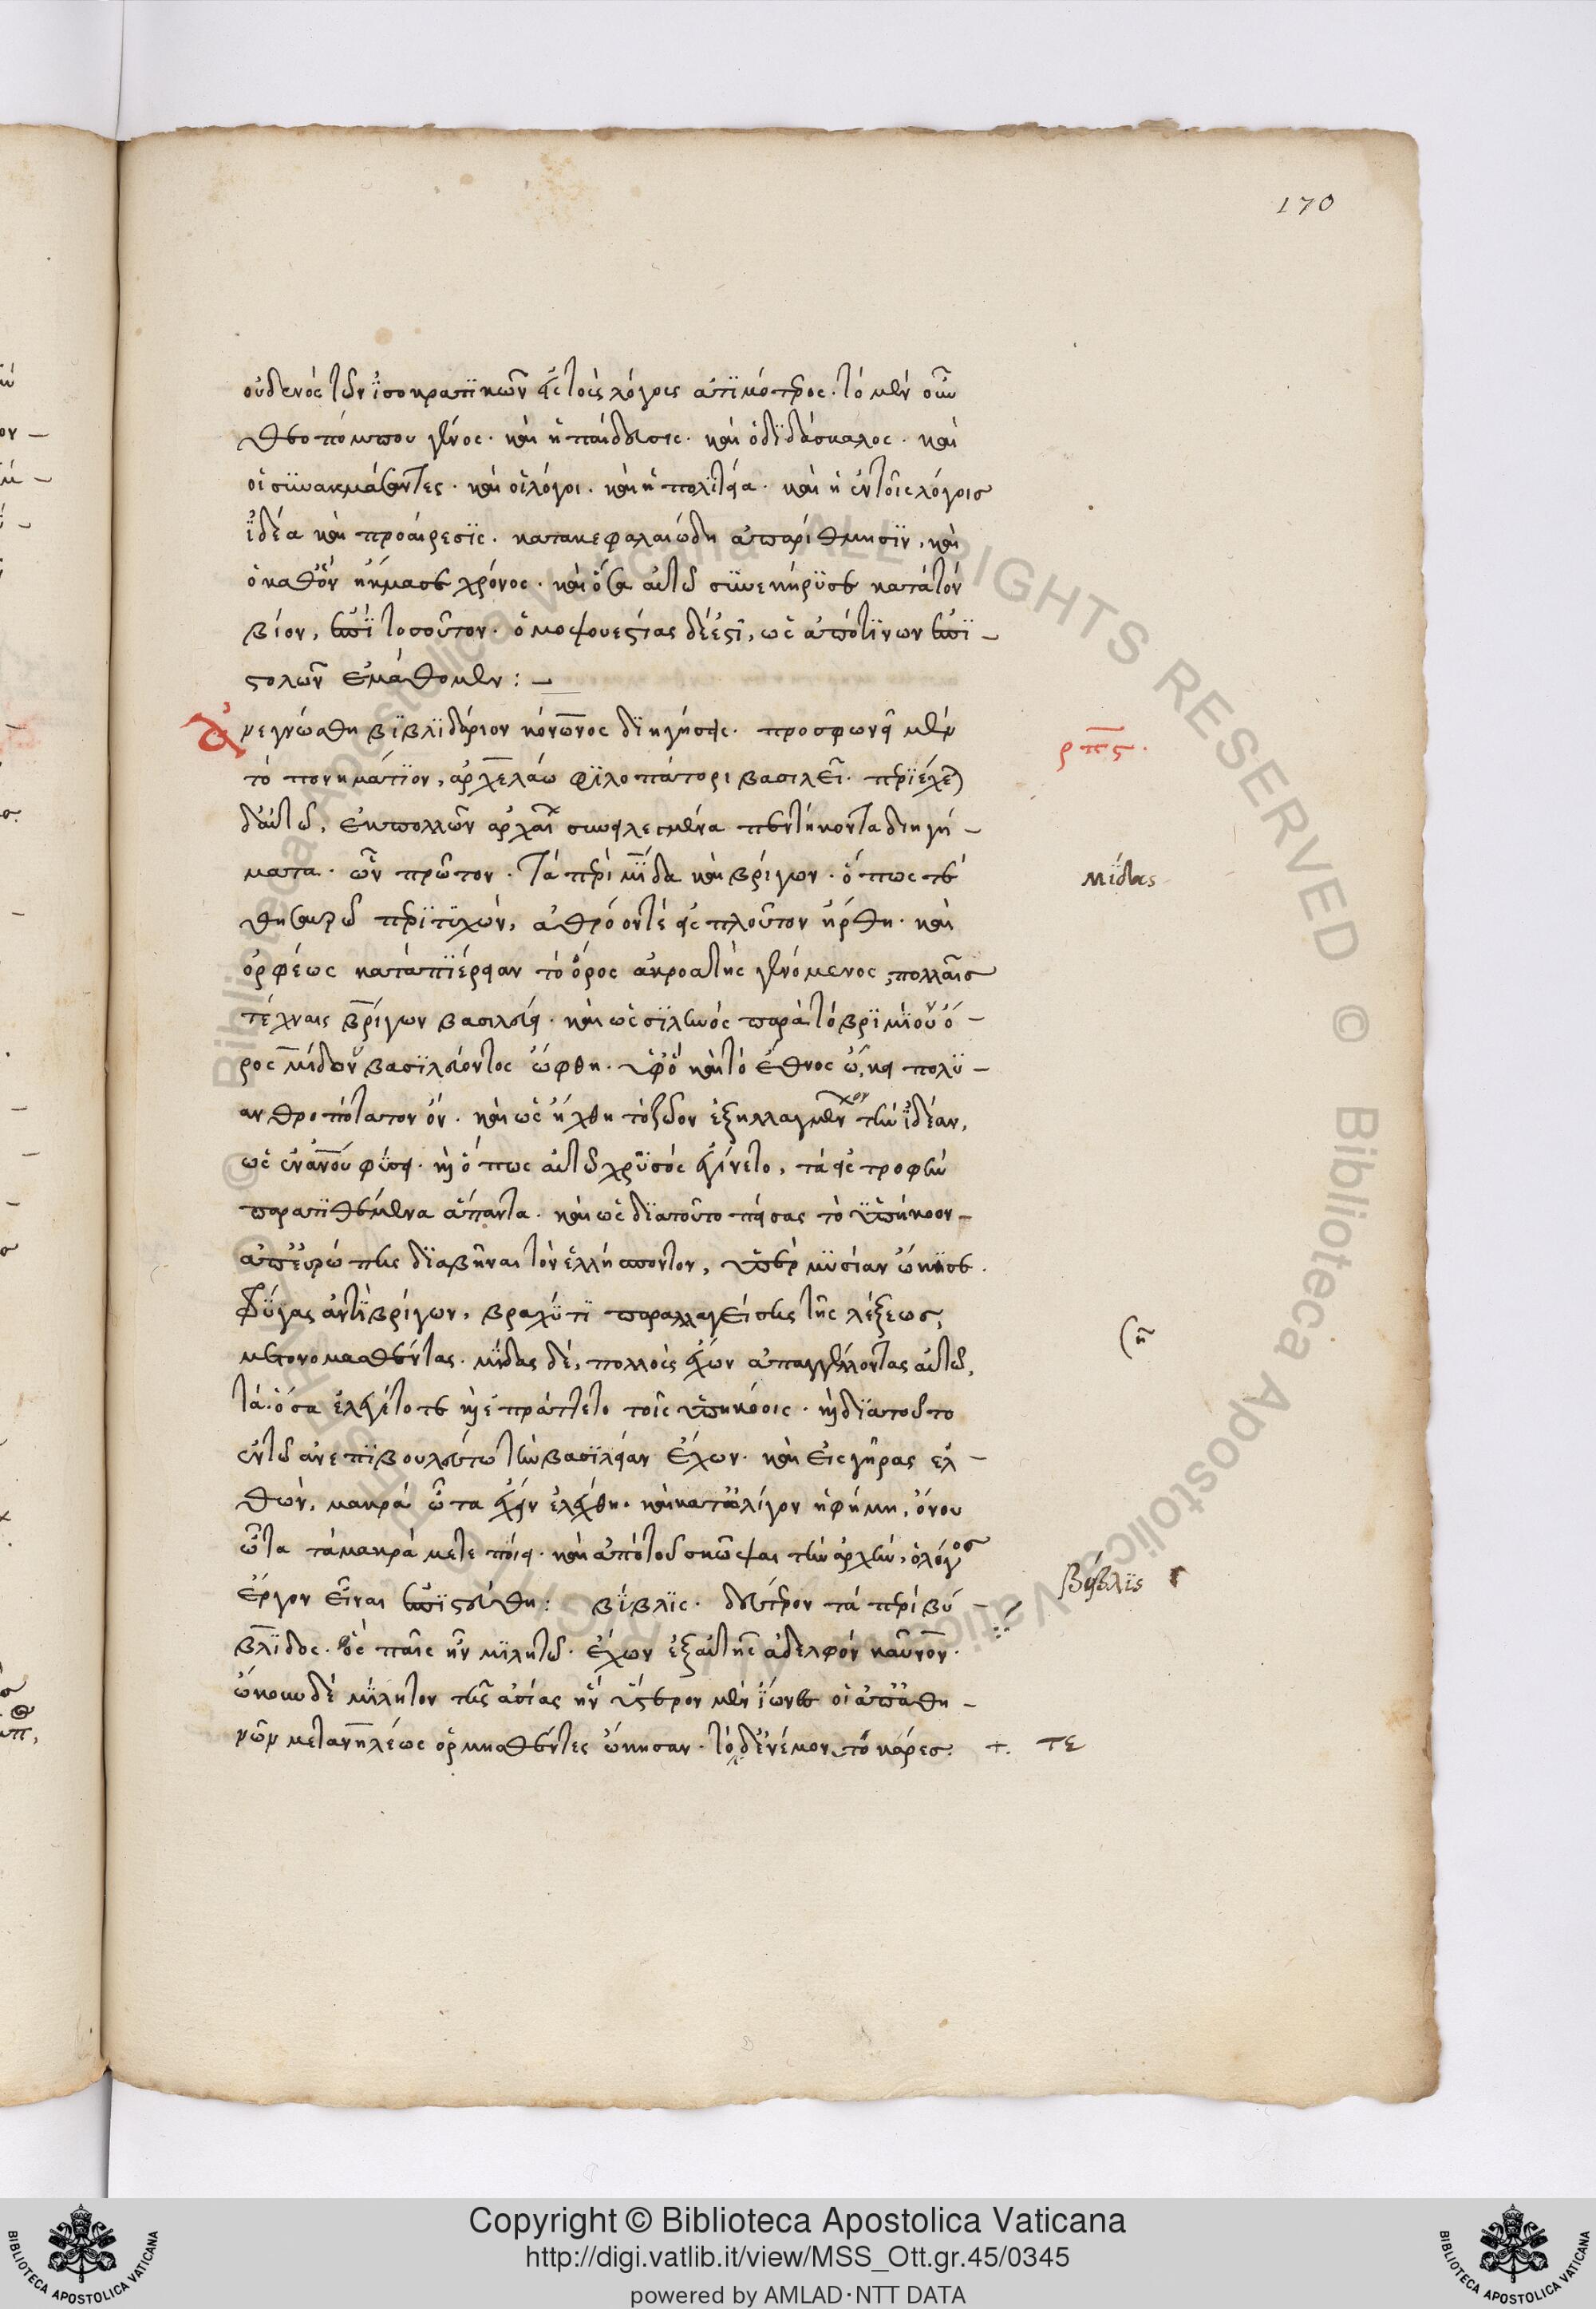 170
οὐδενός τῶν ἰσοκρατικῶν εἰς τοὺς λόγους ἀτιμότερος. τό μὲν οὖν
Θεοπόμπου γένος. καὶ ἡ παίδευσις. καὶ ὁ διδάσκαλος. καὶ
οἱ συνακμάσαντες. καὶ οἱ λόγοι. καὶ ἡ πολιτεία. καὶ ἡ ἐν τοῖς λόγοις
ἰδέα καὶ προαίρεσις. κατα κεφαλαιώδη ἀπαρίθμησιν, καὶ
ὁ καθ' ὅν ἤκμασε χρόνος. καὶ ὅσα αὐτῶ συνεκήρυσε κατὰ τόν
βίον, ἐπὶ τοσοῦτον. ὁμοψου ἐστι, ὡς ἀπό τίνων ἐπι –
στολῶν ἐμάθομεν : –
ἀνεγνώσθη βιβλιδάριον κόνωνος διηγήσεις. προσφωνεῖ μὲν
ρπς.
τὸ πονημάτιον, ἀρχελάω φιλοπάτορι βασιλεῖ. περιέχεται
δ' αὐτῶ, ἐκ πολλῶν ἀρχαίων συνειλεγμένα πεντήκοντα διηγή –
ματα. ὧν πρῶτον. τὰ περὶ μίδα καὶ βρίγων. ὅπως τε
μίδας
θησαυρῶ περιτυχών, ἀθρόον τέ εἰς πλοῦτον ἤρθη. καὶ
ὀρφέως κατὰ πιέρειαν τὸ ὄρος ἀκροατής γενόμενος, πολλαῖς
τέχναις βρίγων βασιλεύει. καὶ ὡς σιληνός παρὰ τό βρίμιον ὄ –
ρος μίδου βασιλεύοντος ὤφθη. ὑφ' ὅ καὶ τό ἔθνος ᾤκει πολυ –
ανθροπότατον ὄν. καὶ ὡς ἤχθη τό ζῶον ἐξηλλαγμένον τὴν ἰδέαν,
ὡς ἐν ἀνθρώπου φύσει. καὶ ὅπως αὐτῶ χρυσός ἐγίνετο, τά εἰς τροφήν
παρατιθέμενα ἅπαντα. καὶ ὡς διὰ τοῦτο πείσας τὸ ὑπήκοον –
ἀπ' εὐρώπης διαβῆναι τὸν ἑλλήσποντον, ὑπέρ μυσίαν ᾤκισε.
Φρύγας ἀντὶ βρίγων, βραχύ τι παραλλαγείσης τῆς λέξεως,
μετονομασθέντας. μίδας δέ, πολλούς ἔχων ἀπαγγέλλοντας αὐτῶ,
τά ὅσα ἐλέγετο τε καὶ ἐπράττετο τοῖς ὑπηκόοις. καὶ διὰ τοῦτο
ἐν τῶ ἀνεπιβουλεύτω τὴν βασιλείαν ἔχων. καὶ εἰς γῆρας ἐλ –
θών, μακρά ὦτα ἔχειν ἐλέχθη. καὶ κατ' ὀλίγον ἡ φήμη, ὄνου
ὦτα τά μακρά μετεποίει. καὶ ἀπὸ τοῦ σκῶψαι τὴν ἀρχήν, ὁ λόγος
ἔργον εἶναι ἐπιστεύθη : βίβλις. δεύτερον τὰ περὶ βυ –
βύβλις
βλίδος. ὡς παῖς ἦν μιλήτω. ἔχων ἐξ αὐτῆς ἀδελφόν καῦνον.
ᾤκουν δὲ μίλητον τῆς ἀσίας ἥν ὕστερον μὲν ἴωνες οἱ ἀπ' ἀθη –
νῶν μετὰ νηλέως ὁρμηθέντες ᾤκησαν. τό δ' ἐνέμοντο κάρες. +. τε
Copyright © Biblioteca Apostolica Vaticana
http://digi.vatlib.it/view/MSS_Ott.gr.45/0345
powered by AMLAD·NTT DATA